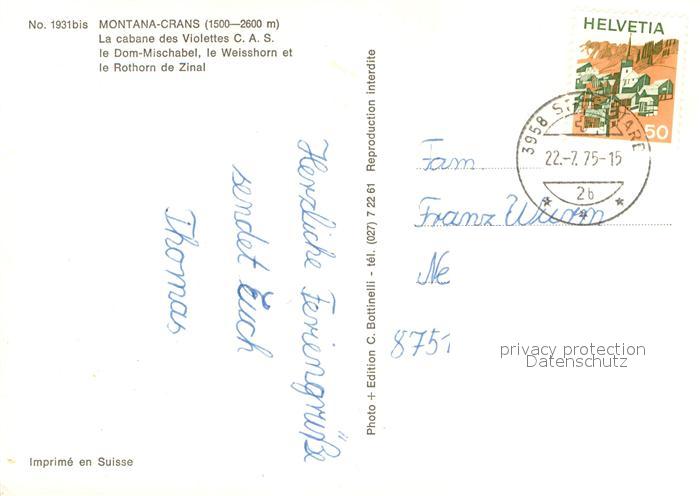 No. 1931bis MONTANA-CRANS (1500—2600 m)
La cabane des Violettes C. A. S.
le Dom-Mischabel, le Weisshorn et
le Rothorn de Zinal
Herzliche Feriengrüße
sendet Euch
Thomas
Imprimé en Suisse
Photo + Edition C. Bottinelli - tél. (027) 7 22 61 Reproduction interdite
HELVETIA
50
3958
22.-7. 75-15
2b
Fam
Franz Wurm
Ne
8751
privacy protection
Datenschutz